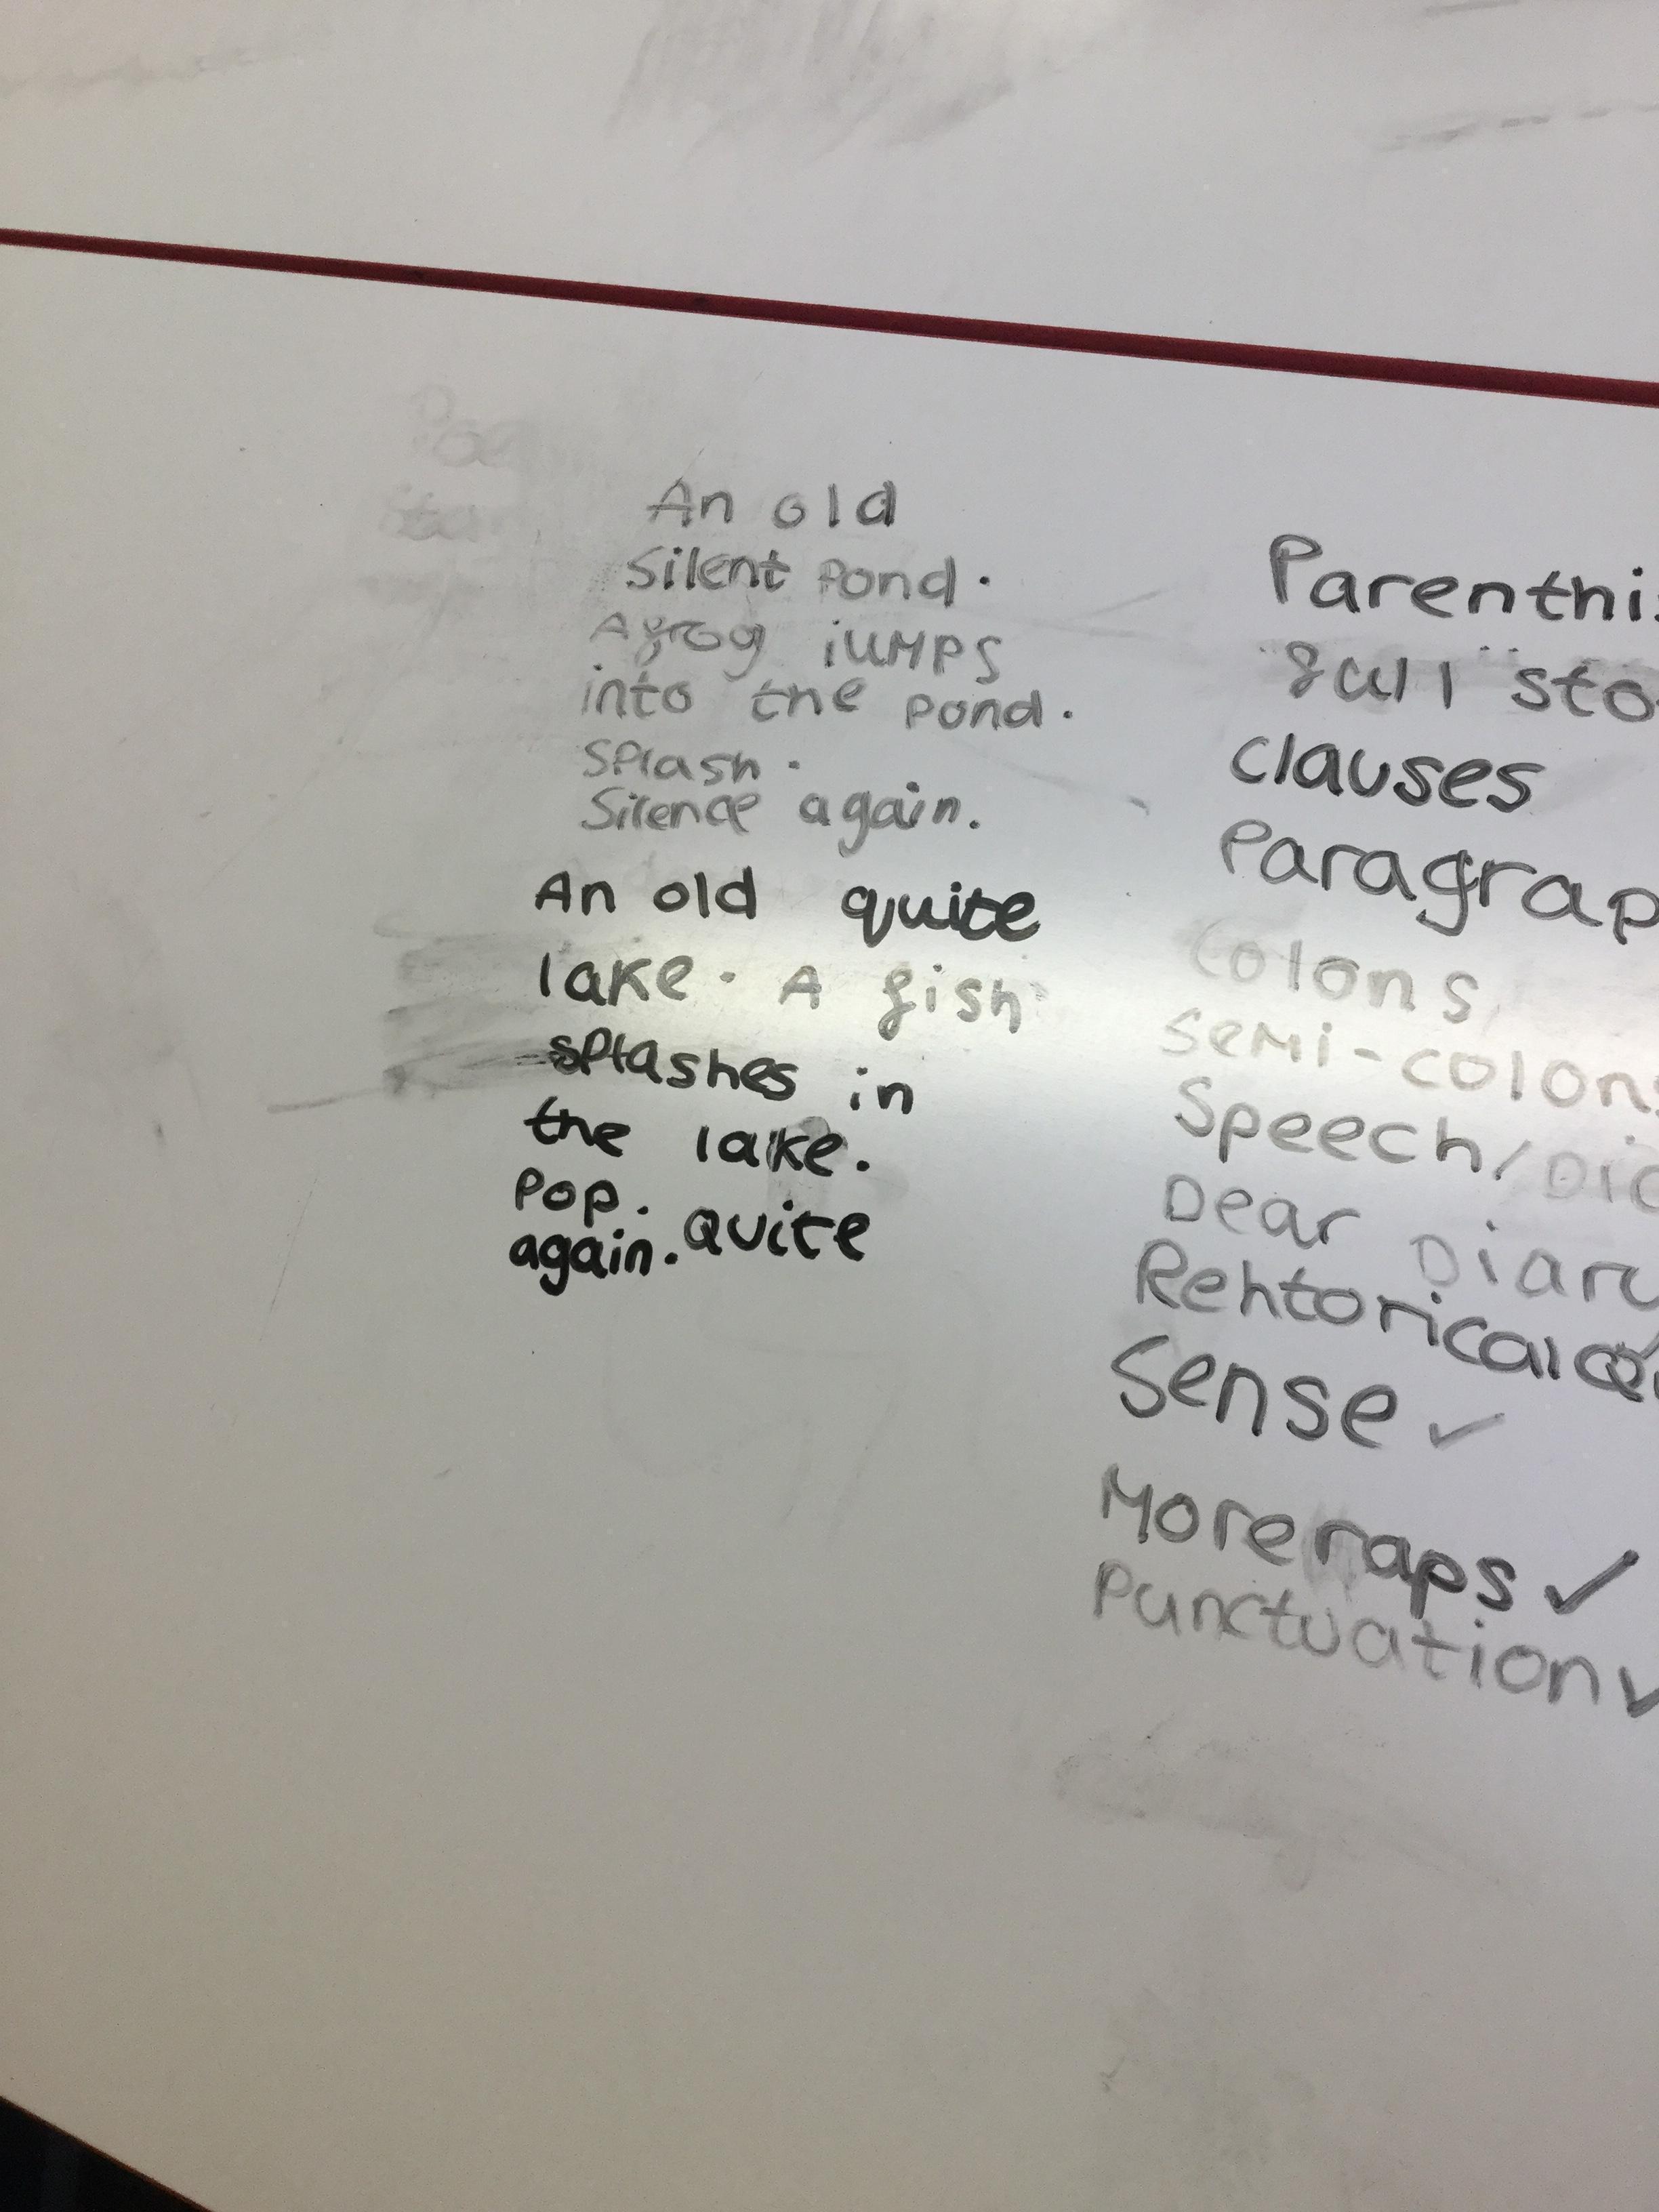 An old
silent pond.
A frog jumps
into the pond.
Splash.
Silence again.
An old quite
lake. A fish
splashes in
the lake.
Pop.
again. Quite
Parenthis
full sto
clauses
Paragrap
Colons
Semi-colons
Speech/Dia
Dear Diary
Rehtorical Q
Sense ✓
More raps ✓
Punctuation ✓